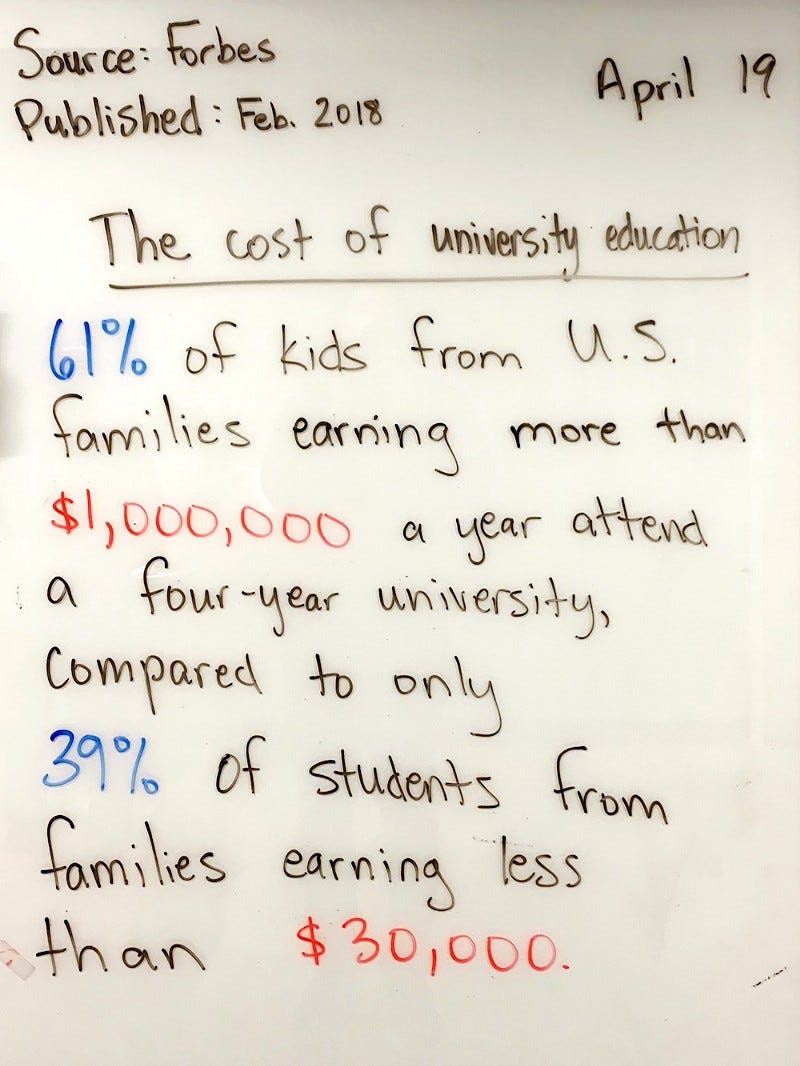 Source: Forbes
Published: Feb. 2018
April 19
The cost of university education
61% of kids from U.S.
families earning more than
$1,000,000 a year attend
a four-year university,
Compared to only
39% of students from
families earning less
than $30,000.